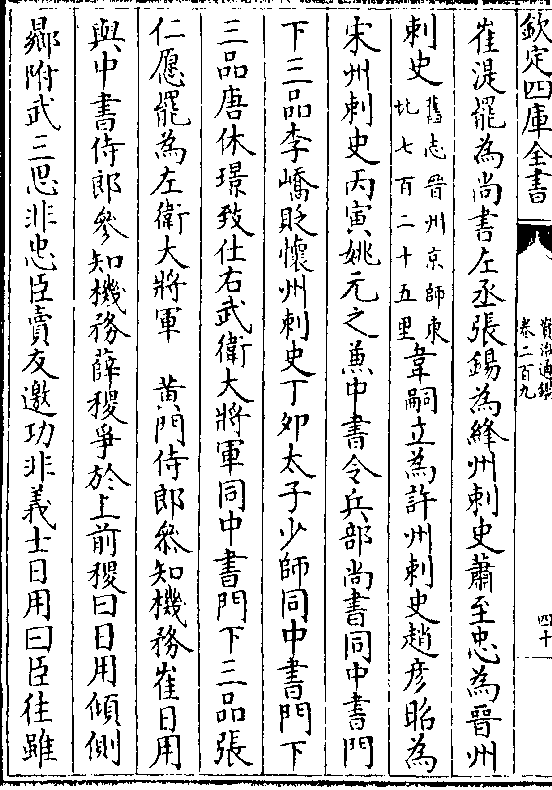 欽定四庫全書
資治通鑑
卷二百九
四十
崔湜罷為尚書左丞張錫為絳州刺史蕭至忠為晉州
刺史舊志晉州京師東
北七百二十五里韋嗣立為許州刺史趙彦昭為
宋州刺史丙寅姚元之兼中書令兵部尚書同中書門
下三品李嶠貶懷州刺史丁夘太子少師同中書門下
三品唐休璟致仕右武衛大將軍同中書門下三品張
仁愿罷為左衛大將軍 黄門侍郎參知機務崔日用
與中書侍郎參知機務薛稷爭於上前稷曰日用傾側
曏附武三思非忠臣賣友邀功非義士日用曰臣往雖